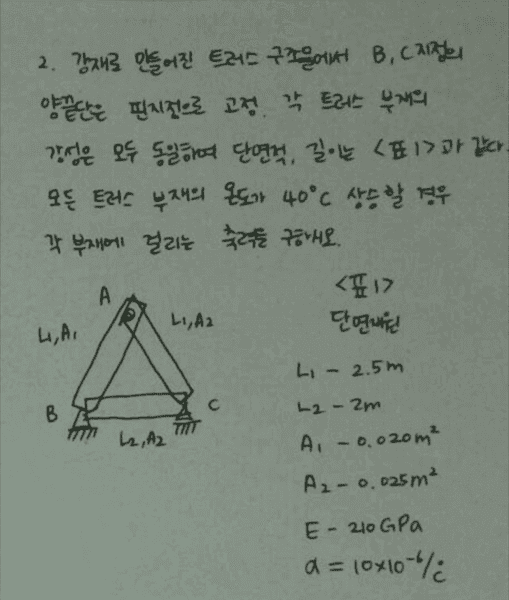 2. 강재로 만들어진 트러스 구조물에서 B, C지점의
양끝단은 핀지점으로 고정. 각 트러스 부재의
강성은 모두 동일하며 단면적, 길이는 <표1>과 같다.
모든 트러스 부재의 온도가 40°C 상승할 경우
각 부재에 걸리는 축력을 구하시오.
<표1>
단면제원
A
L1, A1
L1, A2
B
C
L2, A2
L1 - 2.5m
L2 - 2m
A1 - 0.020m²
A2 - 0.025m²
E - 210GPa
α = 10×10⁻⁶/°C